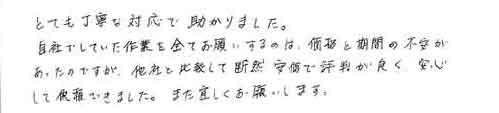 とても丁寧な対応で助かりました。
自社でしていた作業を全てお願いするのは、価格と期間の不安が
あったのですが、他社と比較して断然安価で評判が良く、安心
して依頼できました。また宜しくお願いします。